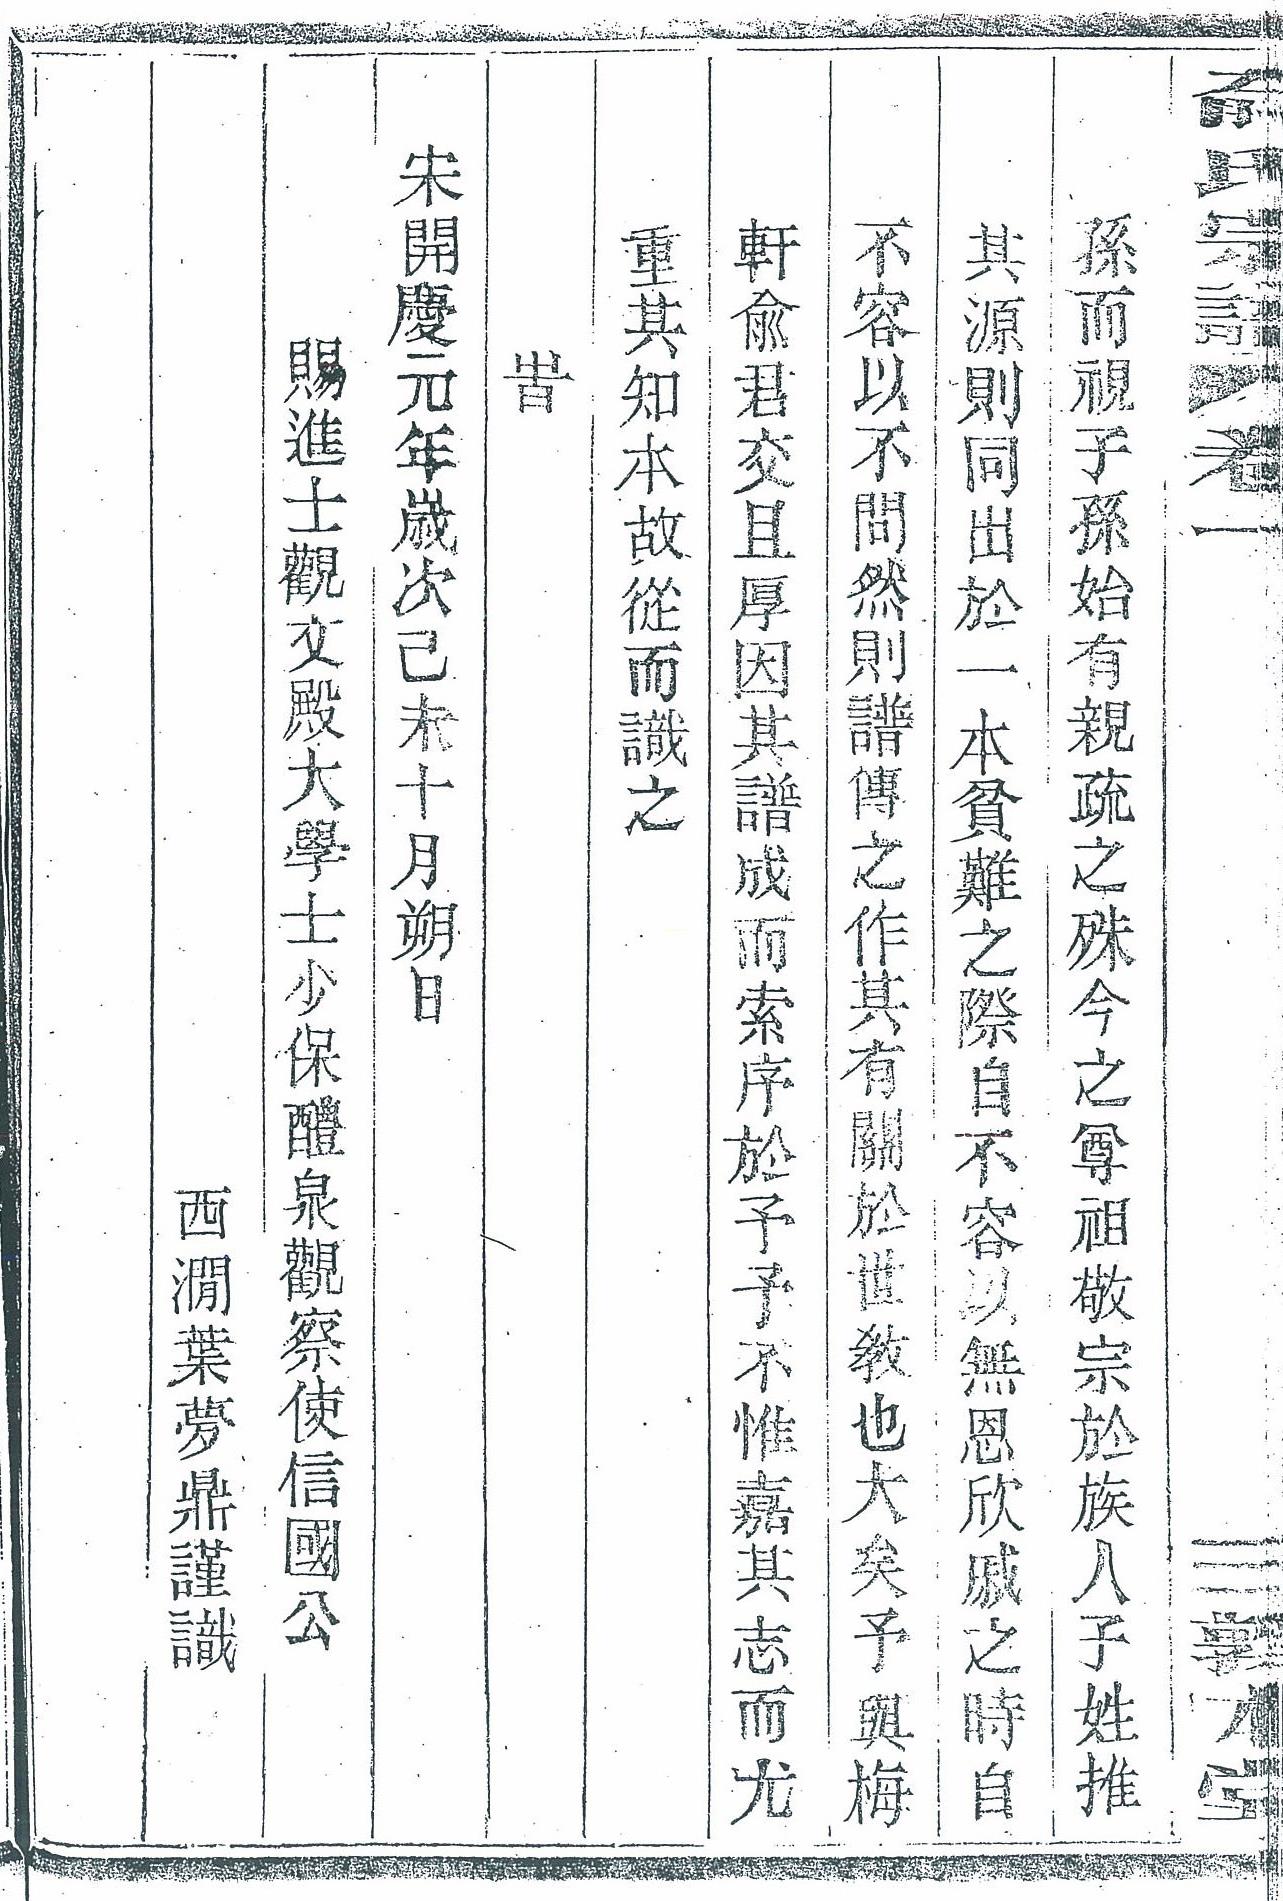 俞氏宗譜 卷一 三 敦
孫而視子孫始有親疏之殊今之尊祖敬宗於族人子姓推
其源則同出於一本貧難之際自不容以無恩欣戚之時自
不容以不問然則譜傳之作其有關於世敎也大矣予與梅
軒俞君交且厚因其譜成而索序於予予不惟嘉其志而尤
重其知本故從而識之
旹
宋開慶元年歲次己未十月朔日
賜進士觀文殿大學士少保醴泉觀察使信國公
西澗葉夢鼎謹識